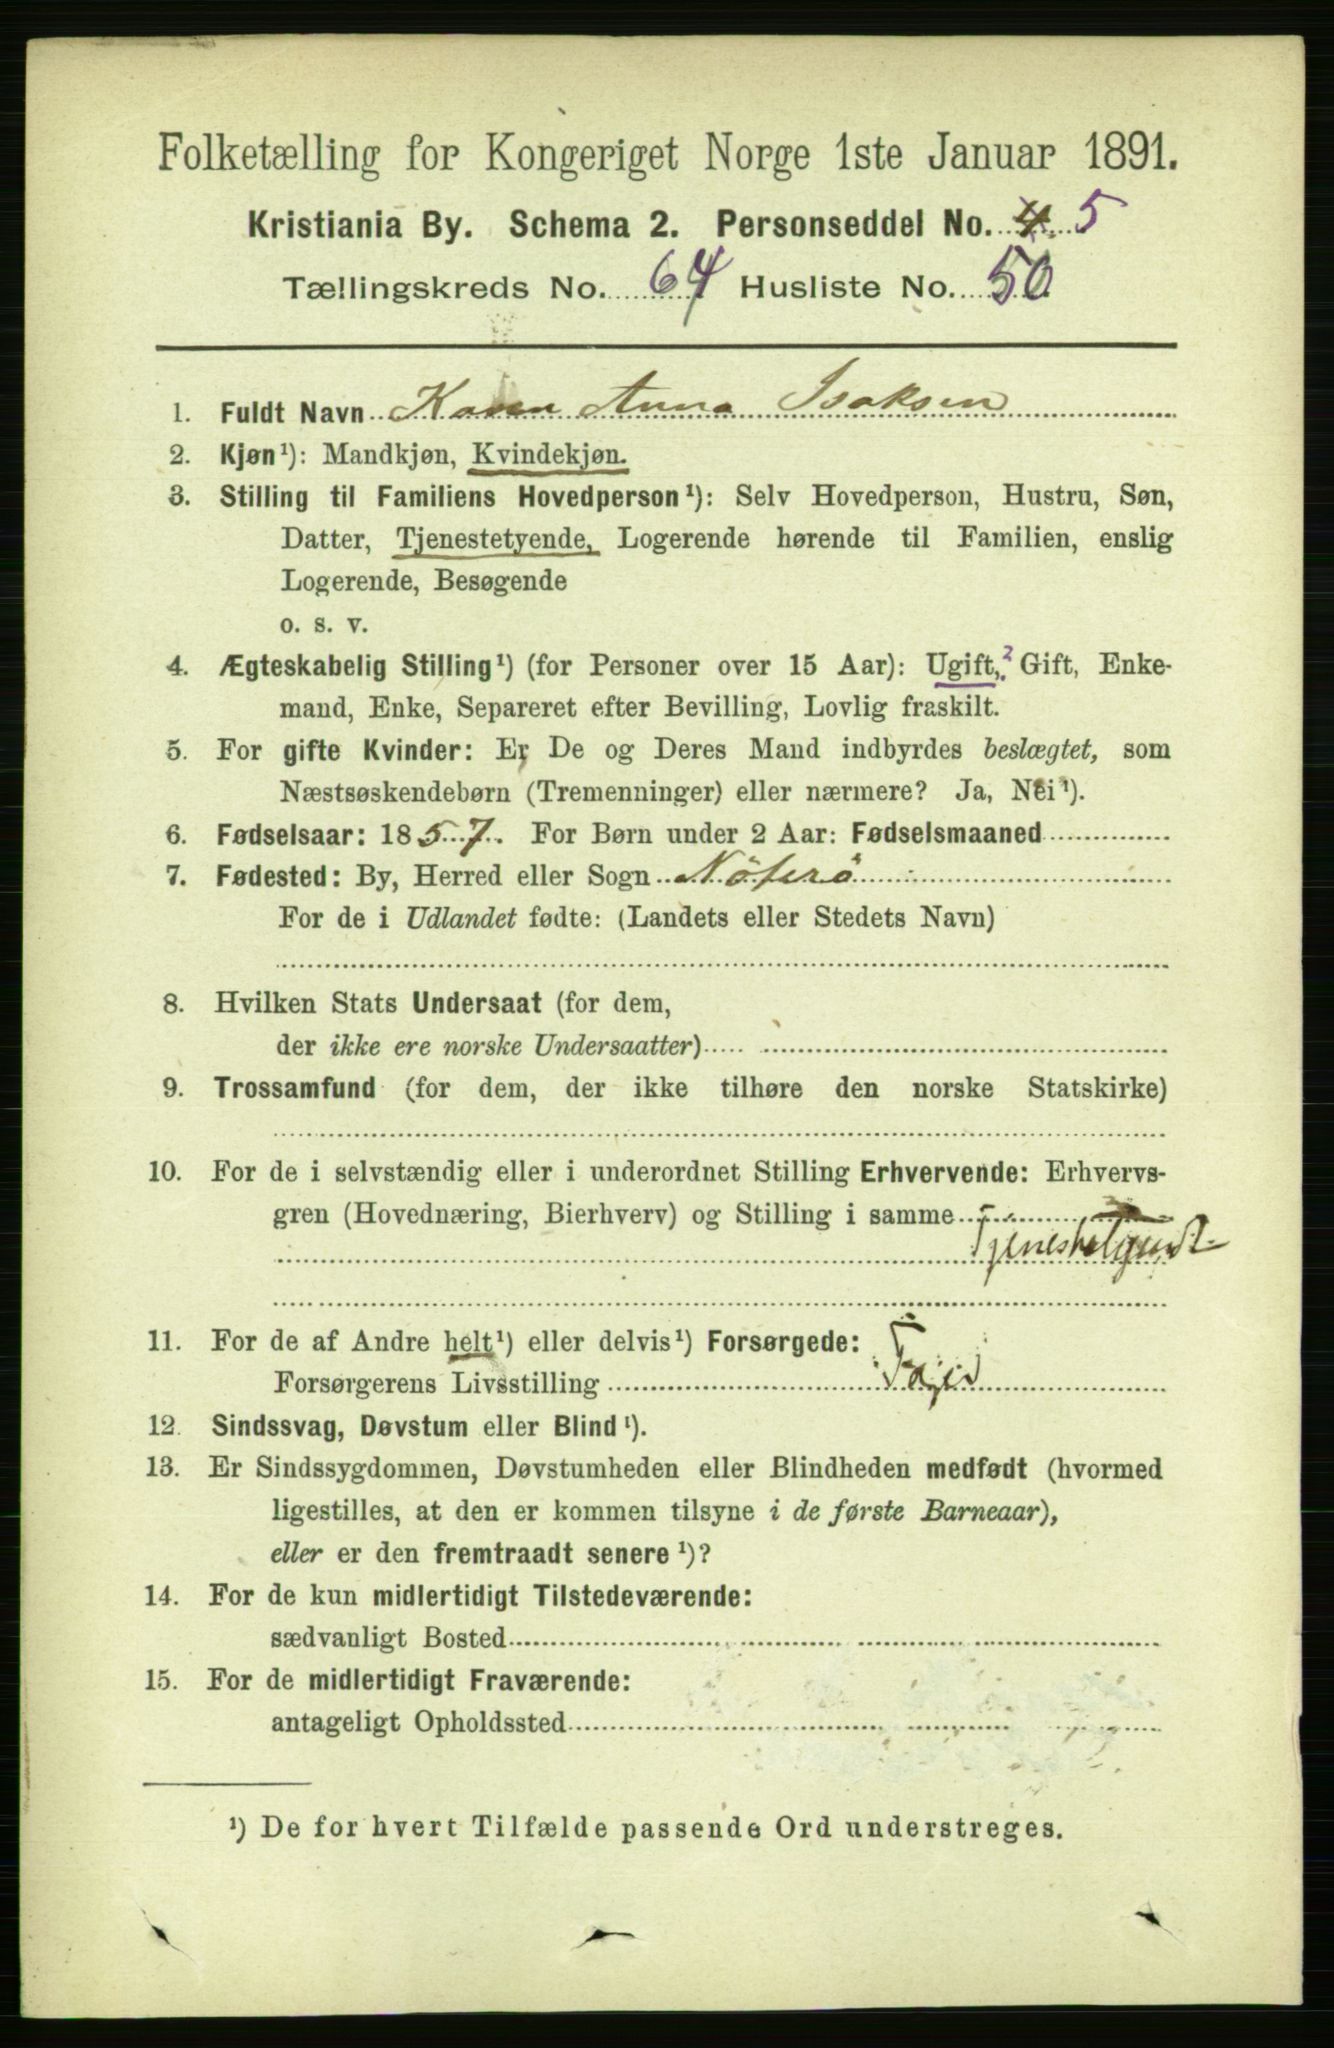 Folketælling for Kongeriget Norge 1ste Januar 1891.
Kristiania By. Schema 2. Personseddel No. 4 5
Tællingskreds No. 64 Husliste No. 50
1. Fuldt Navn Karen Anna Isaksen
2. Kjøn¹): Mandkjøn, Kvindekjøn.
3. Stilling til Familiens Hovedperson¹): Selv Hovedperson, Hustru, Søn,
Datter, Tjenestetyende, Logerende hørende til Familien, enslig
Logerende, Besøgende
o. s. v.
4. Ægteskabelig Stilling¹) (for Personer over 15 Aar): Ugift,² Gift, Enke-
mand, Enke, Separeret efter Bevilling, Lovlig fraskilt.
5. For gifte Kvinder: Er De og Deres Mand indbyrdes beslægtet, som
Næstsøskendebørn (Tremenninger) eller nærmere? Ja, Nei¹).
6. Fødselsaar: 1857. For Børn under 2 Aar: Fødselsmaaned
7. Fødested: By, Herred eller Sogn Nöterö
For de i Udlandet fødte: (Landets eller Stedets Navn)
8. Hvilken Stats Undersaat (for dem,
der ikke ere norske Undersaatter)
9. Trossamfund (for dem, der ikke tilhøre den norske Statskirke)
10. For de i selvstændig eller i underordnet Stilling Erhvervende: Erhvervs-
gren (Hovednæring, Bierhverv) og Stilling i samme
11. For de af Andre helt¹) eller delvis¹) Forsørgede:
Forsørgerens Livsstilling
12. Sindssvag, Døvstum eller Blind¹).
13. Er Sindssygdommen, Døvstumheden eller Blindheden medfødt (hvormed
ligestilles, at den er kommen tilsyne i de første Barneaar),
eller er den fremtraadt senere¹)?
14. For de kun midlertidigt Tilstedeværende:
sædvanligt Bosted
15. For de midlertidigt Fraværende:
antageligt Opholdssted
¹) De for hvert Tilfælde passende Ord understreges.